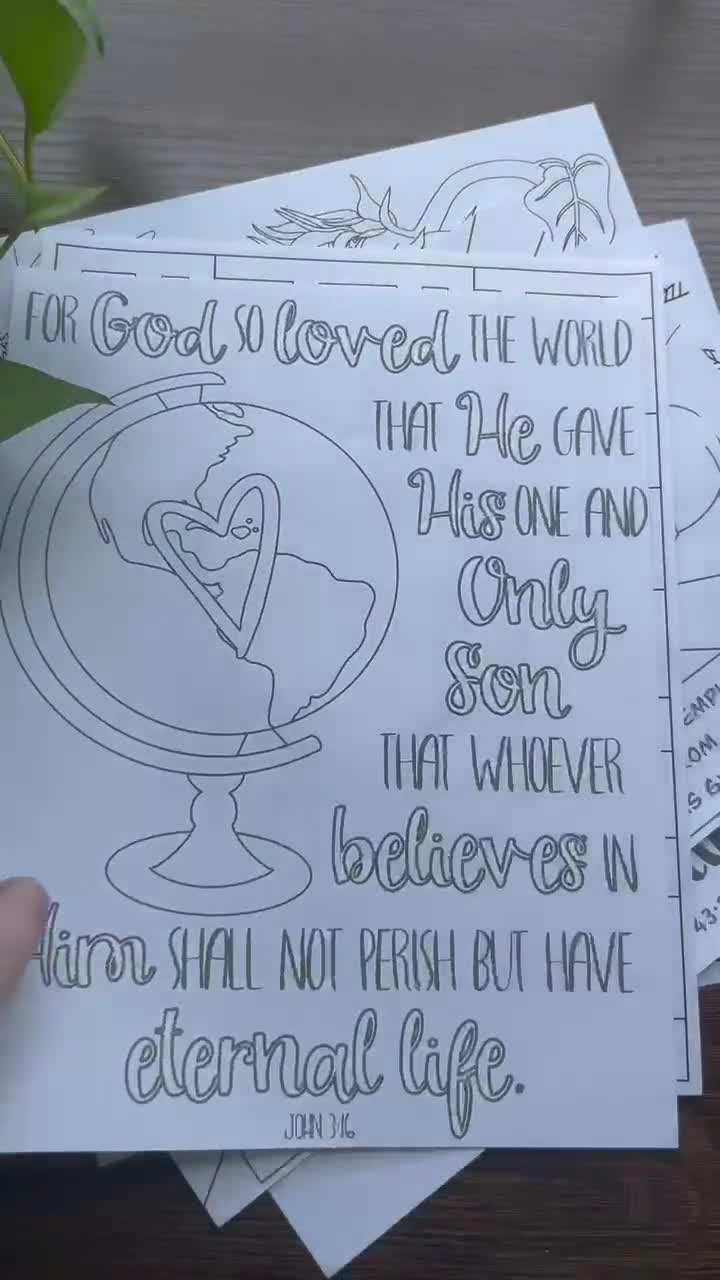 FOR God SO loved THE WORLD
THAT He GAVE
His ONE AND
Only
Son
THAT WHOEVER
believes IN
Him SHALL NOT PERISH BUT HAVE
eternal life.
JOHN 3:16